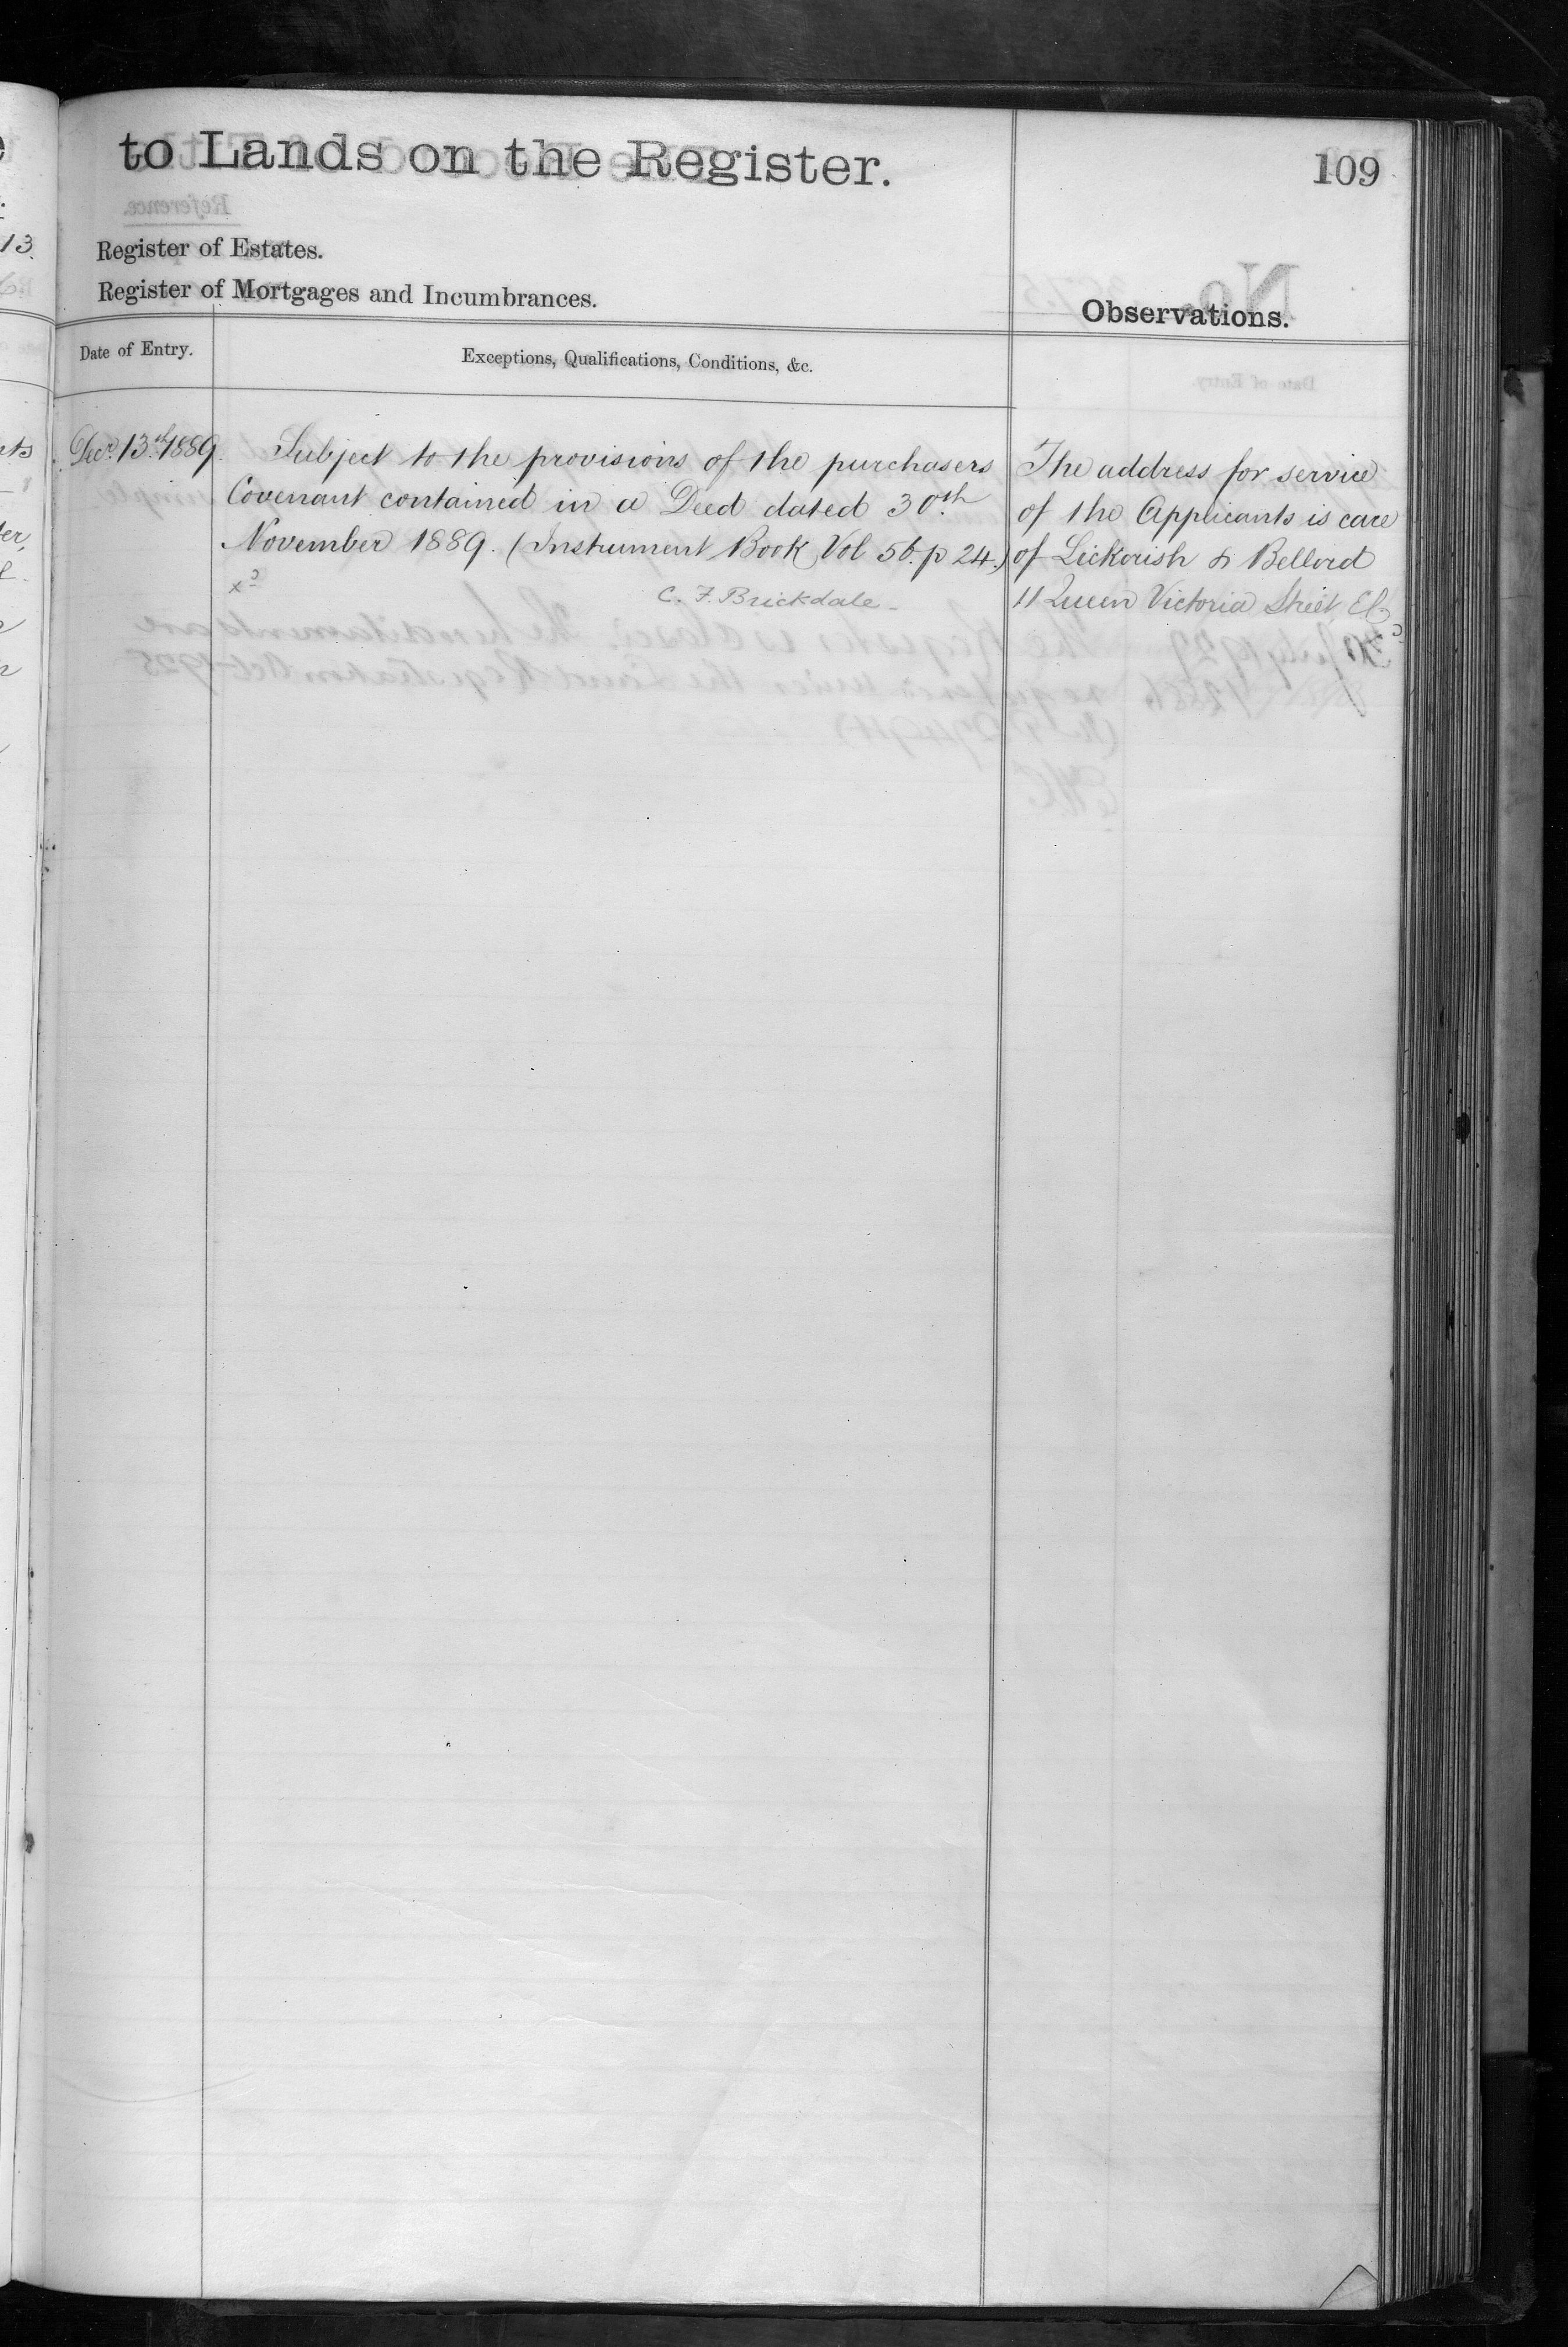 to Lands on the Register.
109
Register of Estates.
Register of Mortgages and Incumbrances.
Observations.
Date of Entry.
Exceptions, Qualifications, Conditions, &c.
Decr. 13th 1889.
Subject to the provisions of the purchasers
Covenant contained in a Deed dated 30th
November 1889. (Instrument Book Vol 56. p 24.)
C. F. Brickdale
The address for service
of the Applicants is care
of Lickorish & Bellord
11 Queen Victoria Street, EC
13.